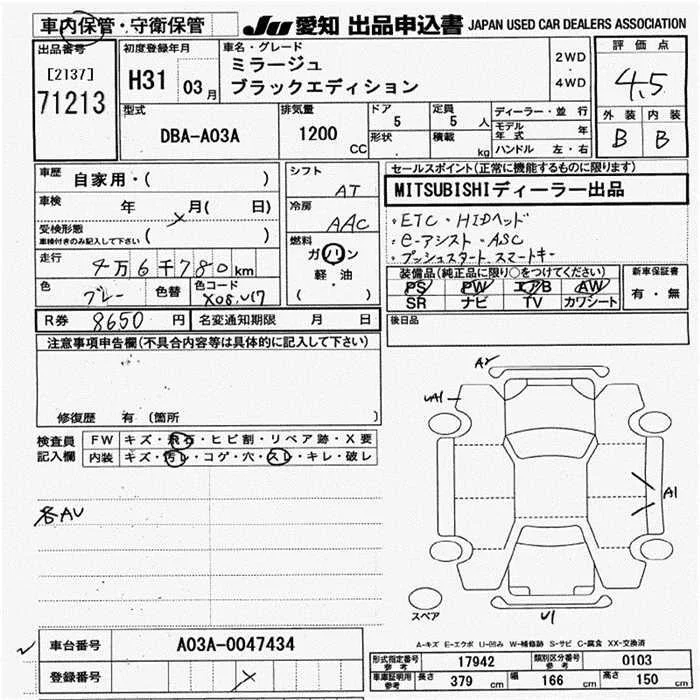 車内保管・守衛保管
JU 愛知 出品申込書 JAPAN USED CAR DEALERS ASSOCIATION
出品番号
[2137]
71213
初度登録年月
H31 03月
車名・グレード
ミラージュ
ブラックエディション
2WD
・
4WD
評価点
4.5
外装 内装
B B
型式
DBA-A03A
排気量
1200
CC
ドア
5
形状
定員
5 人
積載
kg
ディーラー・並行
モデル年式 年
ハンドル 左・右
車歴
自家用・( )
車検 年 月( 日)
受検形態
車検付きのみ記入して下さい ( )
走行 4万6千780km
色 グレー 色替 色コード X08.U17
シフト
AT
冷房
AAC
燃料
ガソリン
軽・油
( )
セールスポイント(正常に機能するものに限ります)
MITSUBISHIディーラー出品
・ETC・HIDヘッド
・e-アシスト・ASC
・プッシュスタート スマートキー
装備品(純正品に限り○をつけてください)
PS PW エアB AW
SR ナビ TV カワシート
新車保証書
有・無
後日品
R券 8650 円 名変通知期限 月 日
注意事項申告欄(不具合内容等は具体的に記入して下さい)
修復歴 有 (箇所 )
検査員
記入欄
FW キズ・飛石・ヒビ割・リペア跡・X要
内装 キズ・汚レ・コゲ・穴・スレ・キレ・破レ
各AU
A2
UA1
A1
U1
スペア
A-キズ E-エクボ U-凹み W-補修跡 S-サビ C-腐食 XX-交換済
車台番号 A03A-0047434
登録番号
形式指定番号参考 17942 類別区分番号参考 0103
車庫証明用参考 長さ 379 cm 幅 166 cm 高さ 150 cm